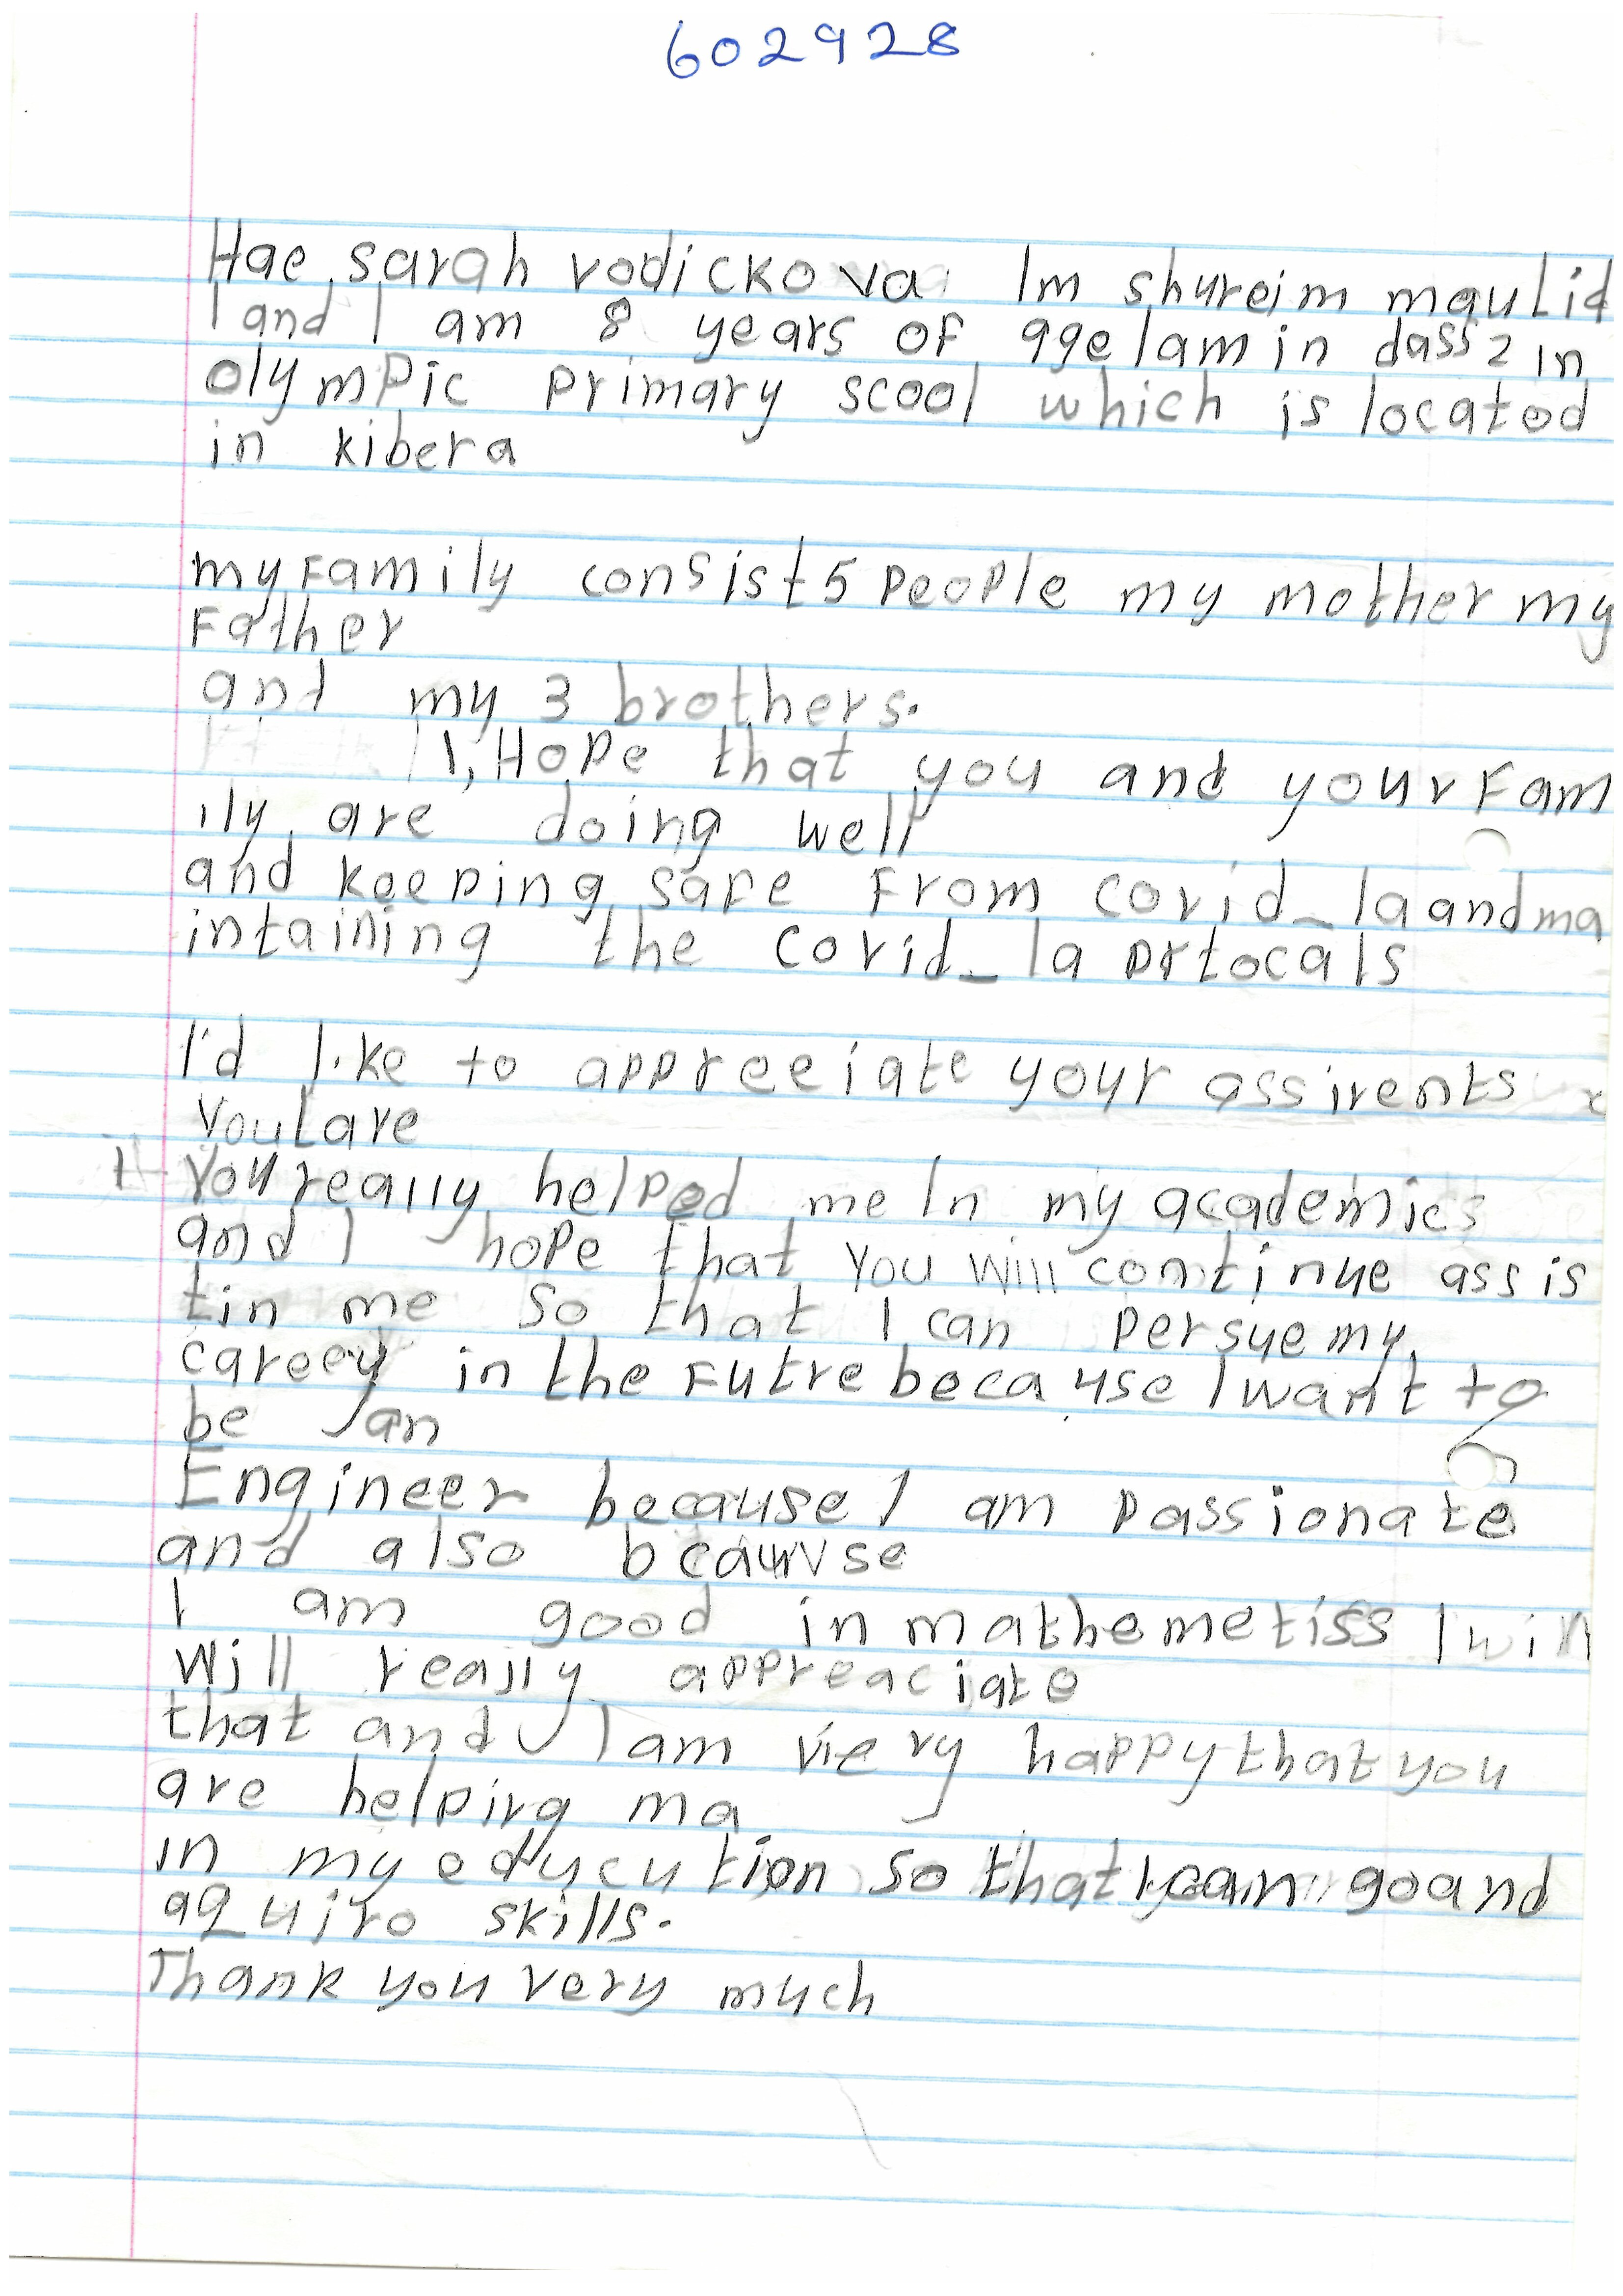 602928
Hae sarah vodickova Im shureim maulid
I and I am 8 years of age I am in class 2 in
olympic primary scool which is locatod
in kibera
my Family consist 5 people my mother my
Father
and my 3 brothers.
I, Hope that you and your Fam
ily are doing well
and keeping safe From covid_19 and ma
intaining the covid_19 prtocals
I'd like to appreeiate your assirents
You are
You really helped me In my academics
and I hope that You will continue assis
tin me so that I can persue my
career in the Futre because I want to
be an
Engineer because I am passionate
and also because
I am good in mathemetiss I will
will really appreaciate
that and I am viery happy that you
are helping ma
in my edycution so that I can go and
aquiro skills.
Thank you very much